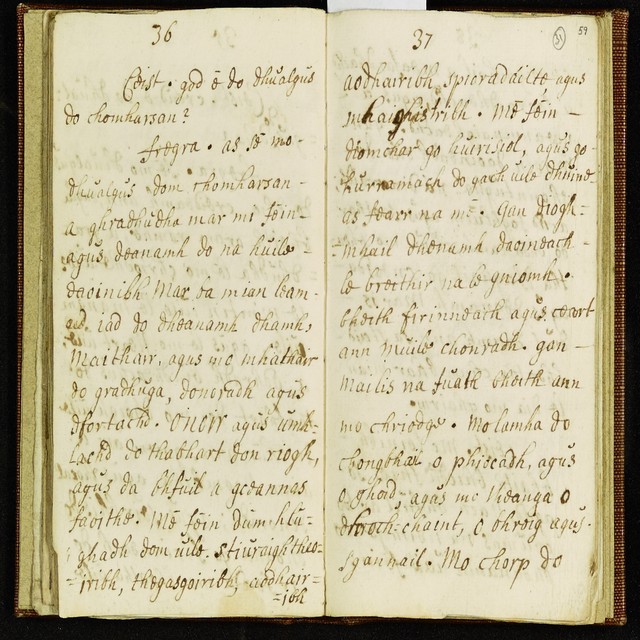 36
Ceist. god é do dhualgus
do chomharsan?
fregra. as sé mo-
dhualgus dom chomharsan-
a ghradhudha mar mi féin-
agus deanamh do na huile-
daoinibh Mar ba mian leam-
iad do dheanamh dhamh,
Maithair, agus mo mhathair
do gradhuga, donoradh agus
dfortachd. Onoir agus umh-
lachd do thabhart don riogh,
agus da bhfuil a gceannas
faoithe. Mé féin dumhlu-
ghadh dom uile. stiuraightheo-
-iribh, thegasgoiribh, aodhair-
-ibh
37
51
59
aodhairibh spioraddilte agus
mhaighistribh. Mé féin-
diomchar go huirisiol, agus go-
hurramach do gach uile dhuine-
as fearr na mé. Gan diogh-
-mhail dhenamh daoineach-
le breithir na le gniomh.
bheith firinneach agus ceart
ann muile chonradh. gan-
Mailis na fuath bheith ann
mo chriodge. Mo lamha do
chongbhail o phiocadh, agus
o ghoid, agus mo theanga o
dhroch-chaint, o bhroig agus-
sgannail. Mo chorp do